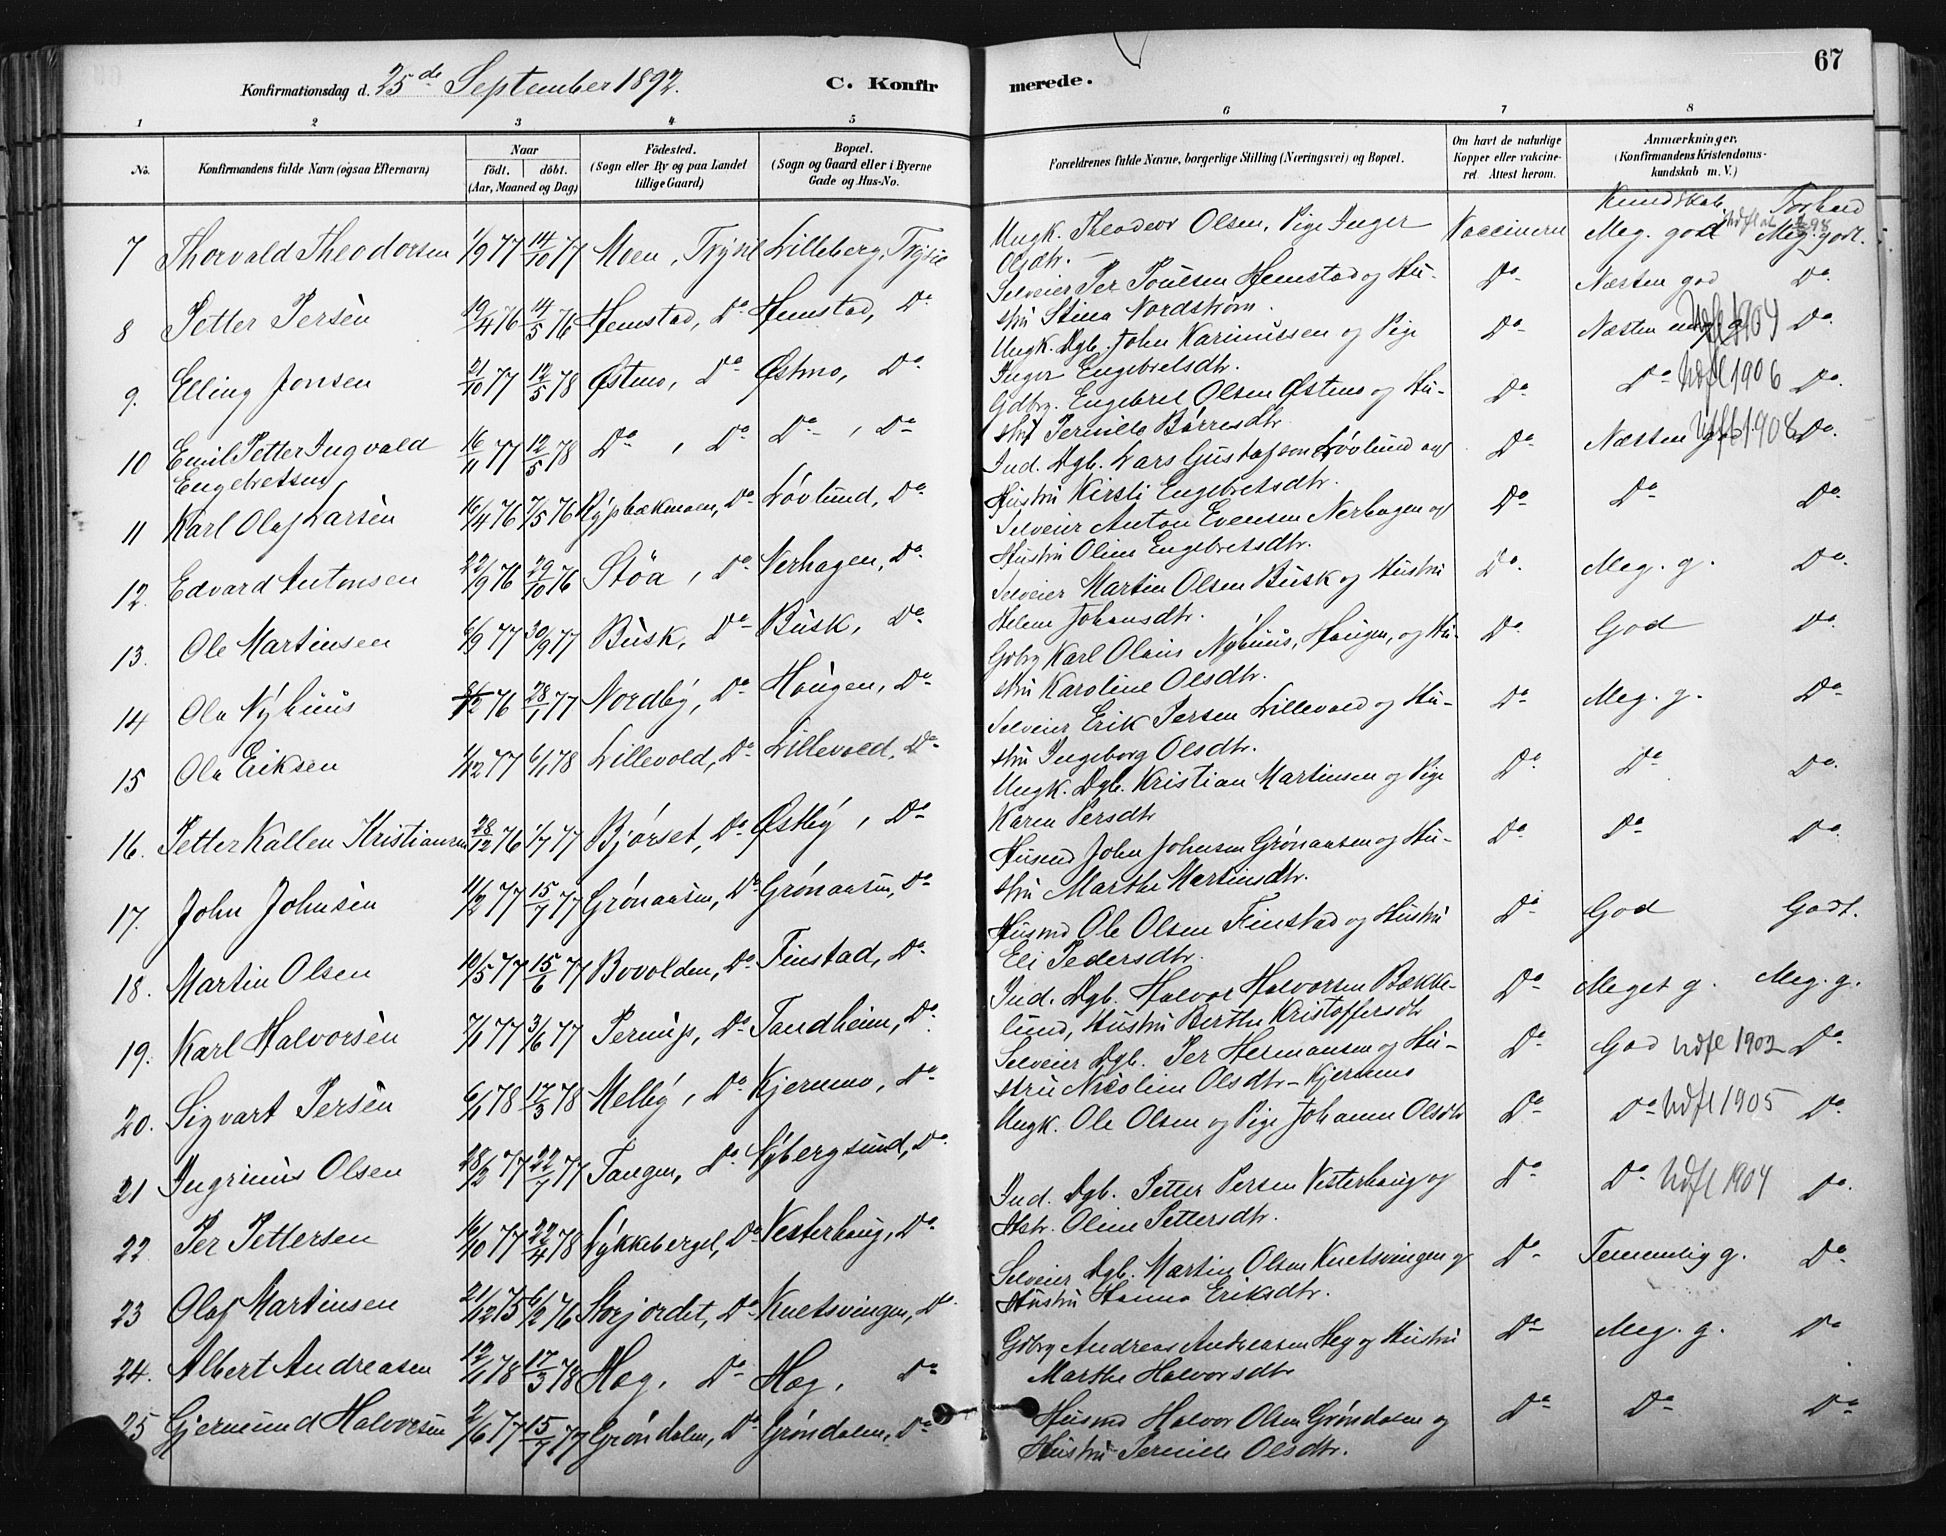 67
Konfirmationsdag d. 25de September 1892.
C. Konfirmerede.
1 2 3 4 5 6 7 8
No.
Konfirmandens fulde Navn (ogsaa Efternavn)
Naar
født. døbt.
(Aar, Maaned og Dag)
Fødested.
(Sogn eller By og paa Landet
tillige Gaard)
Bopæl.
(Sogn og Gaard eller i Byerne
Gade og Hus-No.
Forældrenes fulde Navne, borgerlige Stilling (Næringsvei) og Bopæl.
Om havt de naturlige
Kopper eller vaccine-
ret. Attest herom.
Anmærkninger.
(Konfirmandens Kristendoms-
kundskab m. V.)
Kundskab Forhold
7 Thorvald Theodorsen 1/9 77 14/10 77 Moen, Trysil Lilleberg, Trysil Ungk. Theodor Olsen, Pige Inger Vaccineret Meg. god Meg. godt.
Olsdtr. –
8 Petter Persen 19/4 76 14/5 76 Hemstad, Do Hemstad, Do Selveier Per Poulsen Hemstad og Hu- Do Næsten god Do
stru Stina Nordstrøm.
9. Elling Jonsen 21/10 77 12/5 78 Østmo, Do Østmo, Do Ungk. Dgb. John Karinussen og Pige Do Næsten Udfl 1904 Do.
Inger Engebretsdtr.
10 Emil Petter Ingvald 16/11 77 12/5 78 Do, Do Do, Do Gdbrg. Engebret Olsen Østmo og Hu- Do Do Udfl 1906 Do.
Engebretsen
stru Pernille Børresdtr.
11 Karl Olaf Larsen 16/4 76 7/5 76 Rypbækmoen, Do Løvlund, Do Ind. Dgb. Lars Gustafson Løvlund og Do Næsten 1908 Do.
Hustru Kirsti Engebretsdtr.
12. Edvard Antonsen 22/9 76 29/10 76 Støa, Do Nerhagen, Do. Selveier Anton Evensen Nerhagen og Do Do Do
Hustru Oline Engebretsdtr.
13. Ole Martinsen 6/9 77 30/9 77 Busk, Do Busk, Do Selveier Martin Olsen Busk og Hustru Do. Meg. g. Do.
Helene Johansdtr.
14 Ole Nyhuus 2/12 76 28/1 77 Nordby, Do Haugen, Do Gdbrg Karl Olaus Nyhuus, Haugen, og Hu- Do God Do
stru Karoline Olsdtr.
15 Ole Eriksen 2/12 77 6/1 78 Lillevold, Do Lillevold, Do Selveier Erik Persen Lillevold og Hu- Do Meg. g. Do
stru Ingeborg Olsdtr.
16. Petter Kallen Kristiansen 28/12 76 1/7 77 Bjørset, Do Østby, Do Ungk. Dgb. Kristian Martinsen og Pige Do Do Do
Karen Persdtr
17. John Johnsen 11/2 77 15/7 77 Grønaasen, Do Grønaasen, Do Husmd John Johnsen Grønaasen og Hu- Do Do Do
stru Marthe Martinsdtr.
18. Martin Olsen 10/5 77 15/6 77 Bovolden, Do Finstad, Do Husmd Ole Olsen Finstad og Hustru Do God Godt.
Eli Pedersdtr.
19. Karl Halvorsen 7/1 77 3/6 77 Pernup, Do Tandheim, Do Ind. Dgb. Halvor Halvorsen Bække- Do Meget g. Meg. g.
lund, Hustru Berthe Kristoffersdtr
20. Sigvart Persen 6/1 78 17/3 78 Melby, Do Kjernmo, Do Selveier Dgb. Per Hermansen og Hu- Do God Udfl 1902 Do
stru Nicoline Olsdtr – Kjernmo
21 Ingrinus Olsen 28/2 77 22/7 77 Tangen, Do Nybergsund, Do Ungk. Ole Olsen og Pige Johanne Olsdtr Do Do Udfl 1905 Do
22 Per Pettersen 16/10 77 22/4 78 Lykkeberget, Do Vesterhaug, Do Ind. Dgb. Petter Persen Vesterhaug og Do Do Udfl 1904 Do
Hstr. Oline Pettersdtr.
23 Olaf Martinsen 21/12 75 6/2 76 Storjordet, Do Knetsvingen, Do Selveier Dgb. Martin Olsen Knetsvingen og Do Temmelig g. Do
Hustru Hanna Eriksdtr.
24. Albert Andreasen 12/1 78 17/3 78 Heg, Do Heg, Do Gdbrg Andreas Andreasen Heg og Hustru Do Meg. g. Do
Marthe Halvorsdtr
25 Gjermund Halvorsen 2/6 77 15/7 77 Grøndalen, Do Grøndalen, Do Husmd Halvor Olsen Grøndalen og Do Do Do
Hustru Pernille Olsdtr.